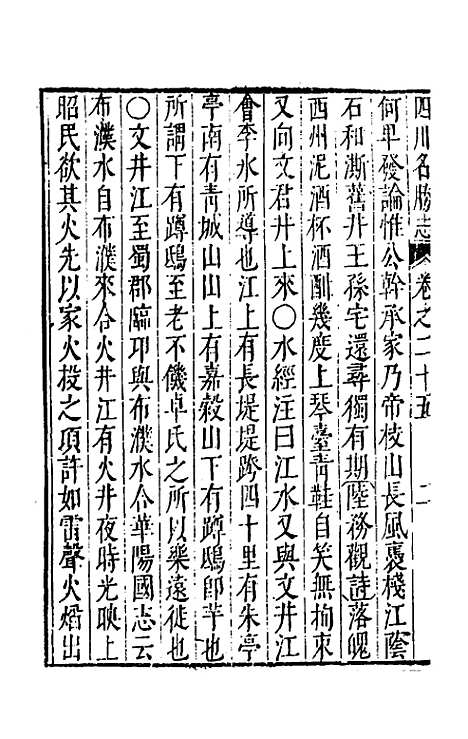 四川名勝志 卷之二十五 二
何早發論惟公幹承家乃帝枝山長風褭棧江陰
石和澌舊井王孫宅還尋獨有期陸務觀詩落魄
西州泥酒杯酒酣幾度上琴臺青鞋自笑無拘束
又向文君井上來〇水經注曰江水又與文井江
會李氷所導也江上有長堤堤跨四十里有朱亭
亭南有青城山山上有嘉糓山下有蹲鴟卽芋也
所謂下有蹲鴟至老不饑卓氏之所以樂遠徙也
〇文井江至蜀郡臨邛與布濮水合華陽國志云
布濮水自布濮來合火井江有火井夜時光映上
昭民欲其火先以家火投之項許如雷聲火熖出